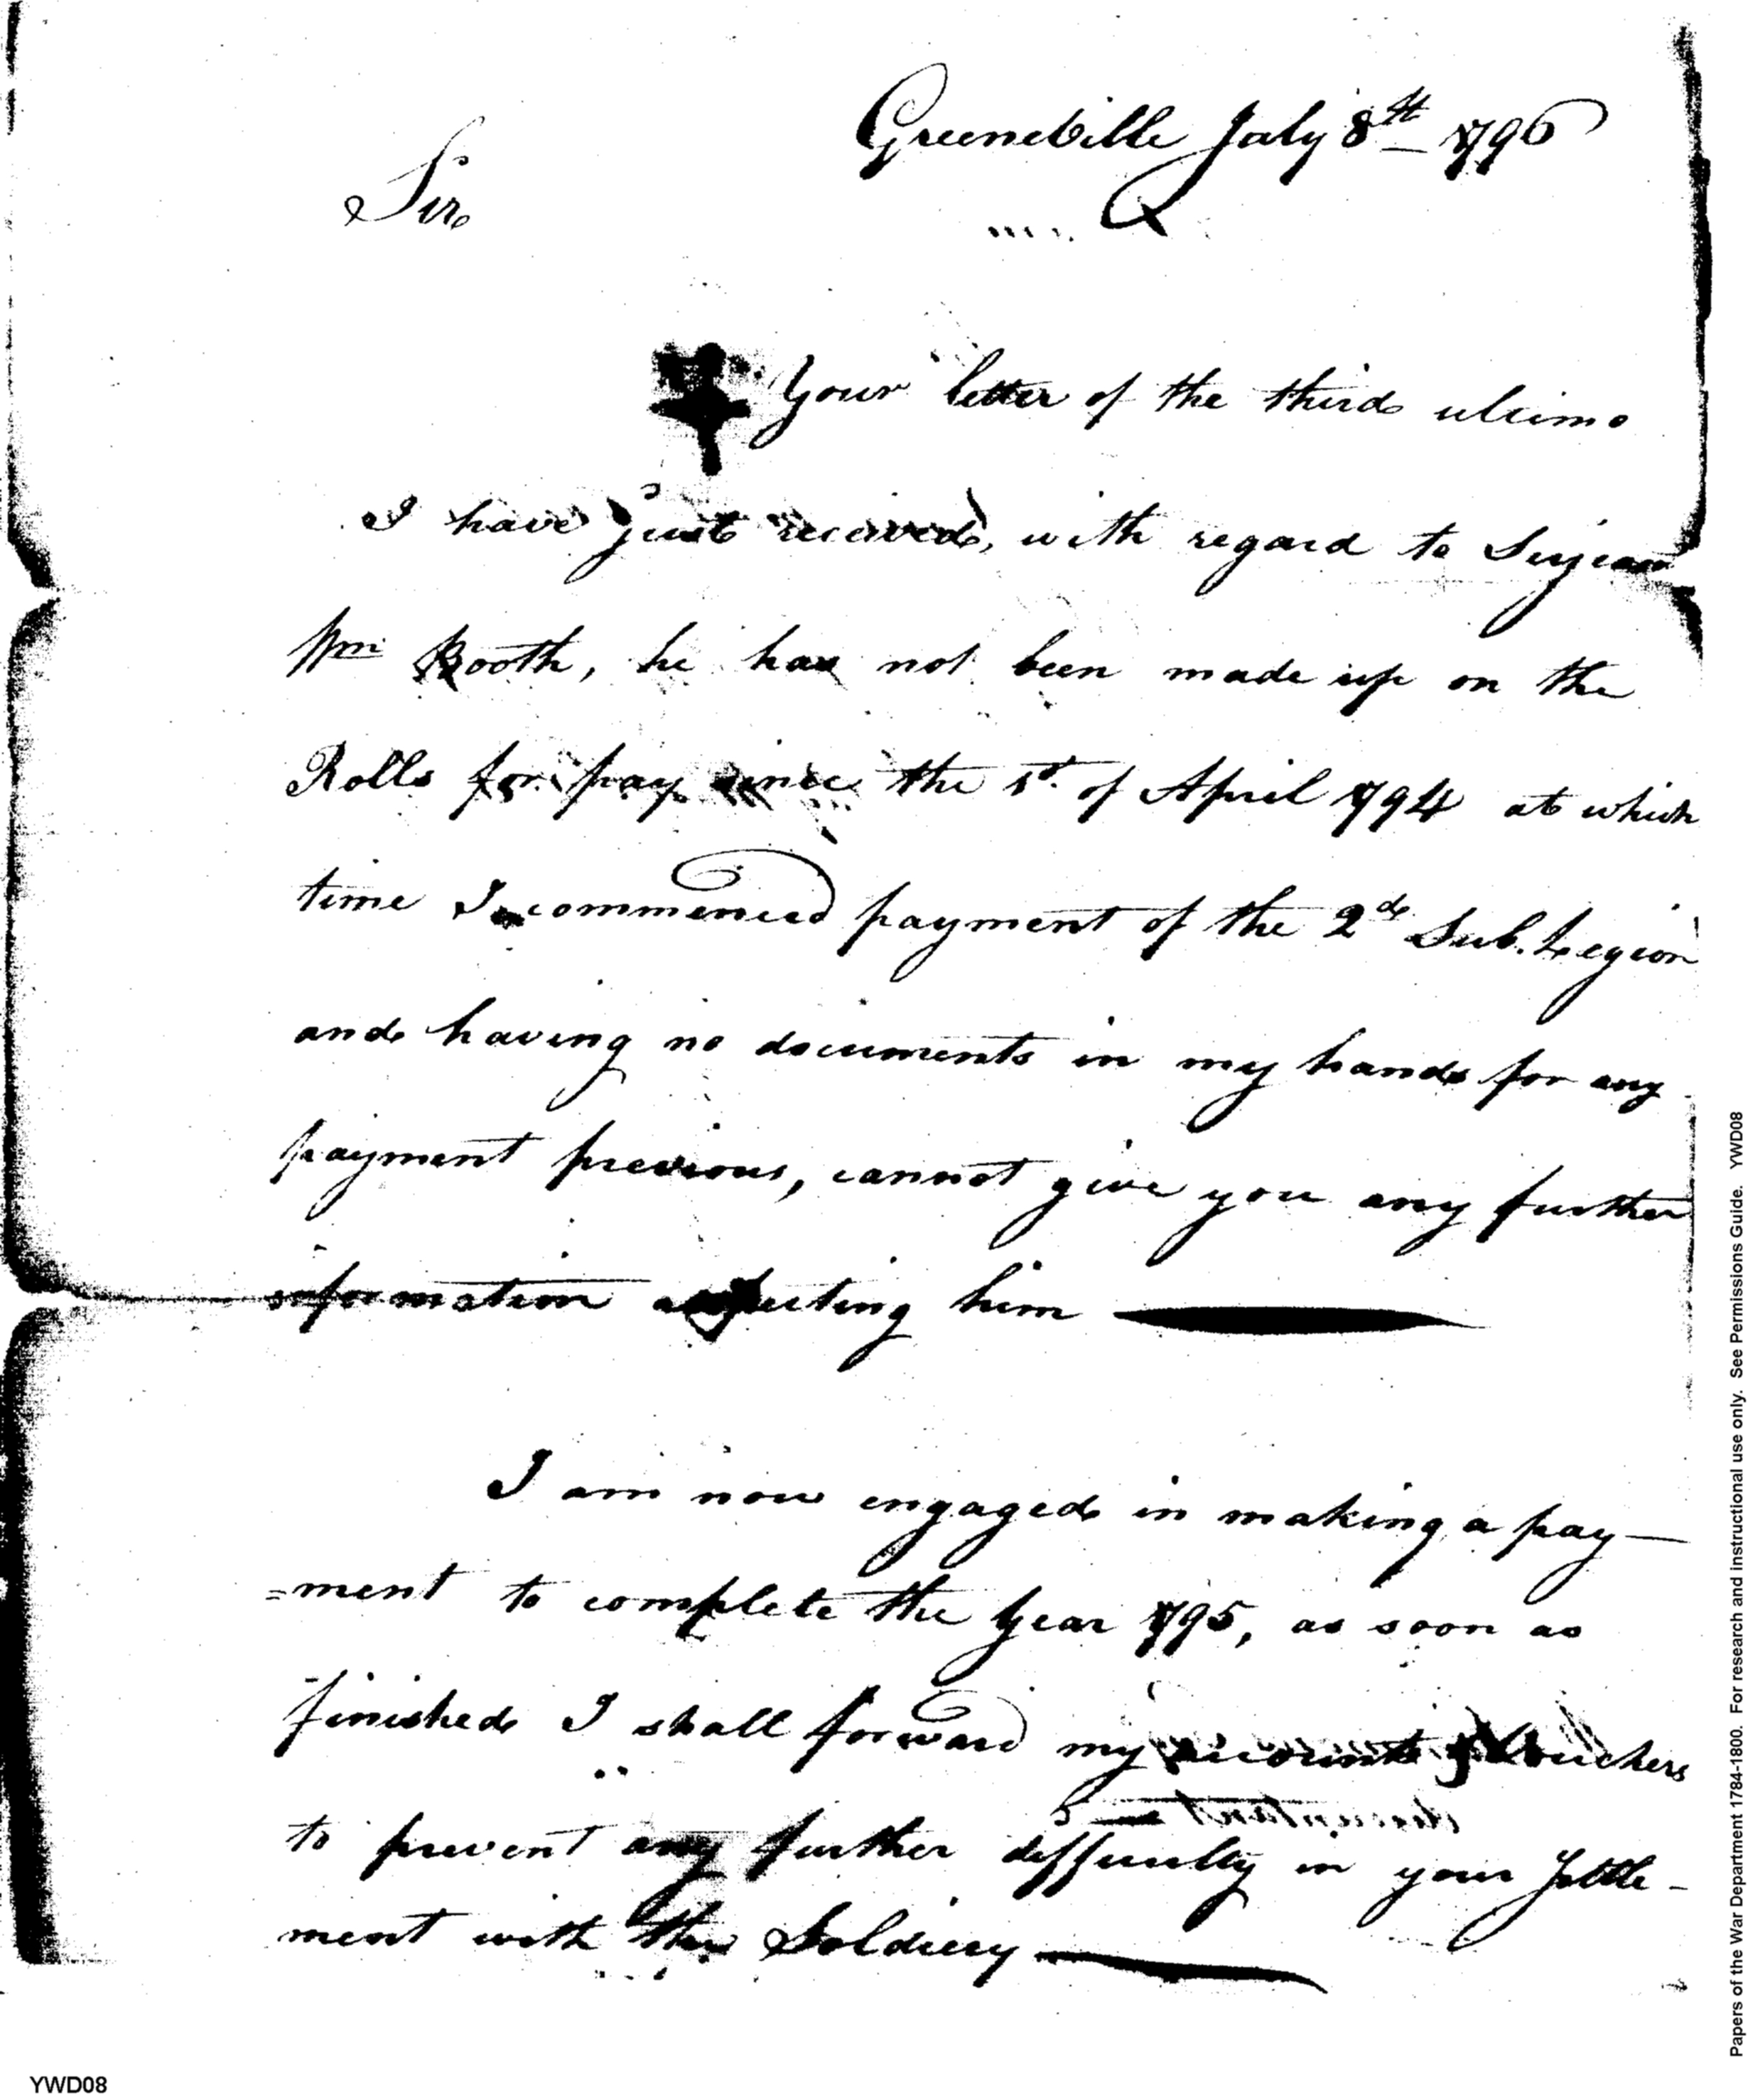 Greeneville July 8th 1796
Sir
Your letter of the third ultimo
I have just received, with regard to Serjean
Wm Booth, he has not been made up on the
Rolls for pay since the 1st. of April 1794 at which
time I commenced payment of the 2d Sub. Legion
and having no documents in my hands for any
payment previous, cannot give you any further
information him
I am now engaged in making a pay-
=ment to complete the Year 1795, as soon as
finished I shall forward my accounts & Vouchers
to prevent any further difficulty in your settle-
ment with the Soldiery
Papers of the War Department 1784-1800. For research and instructional use only. See Permissions Guide. YWD08
YWD08